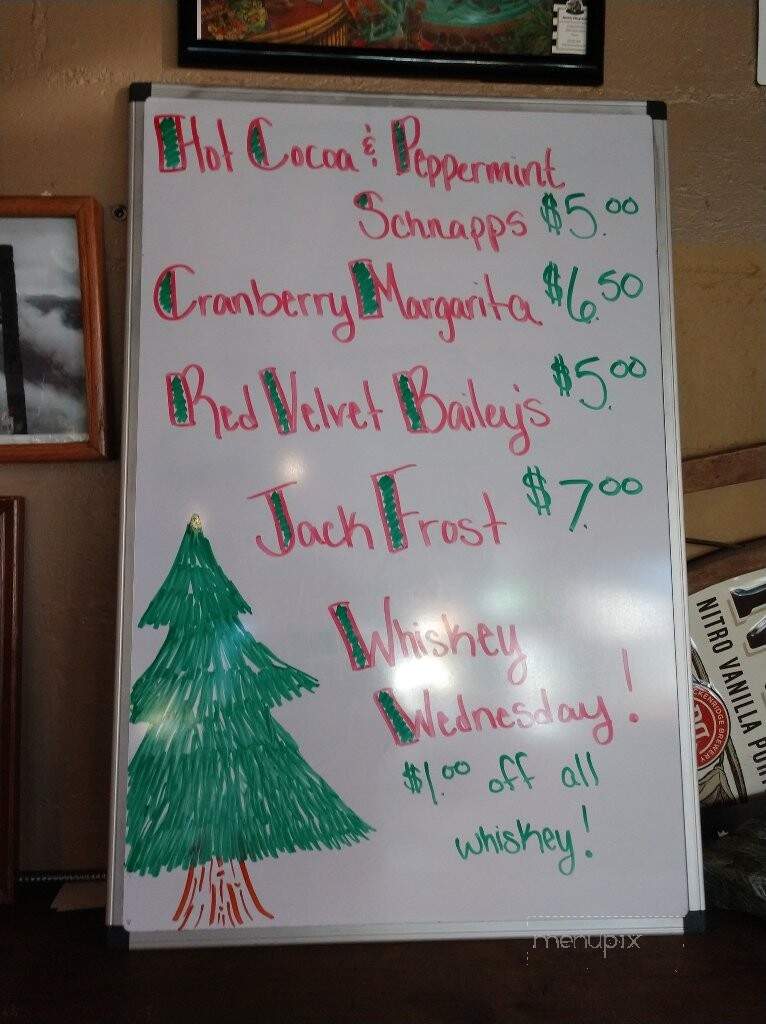 Hot Cocoa & Peppermint
Schnapps $5.00
Cranberry Margarita $6.50
Red Velvet Bailey's $5.00
Jack Frost $7.00
Whiskey
Wednesday!
$1.00 off all
whiskey!
NITRO VANILLA
BRECKENRIDGE BREWERY
menupix